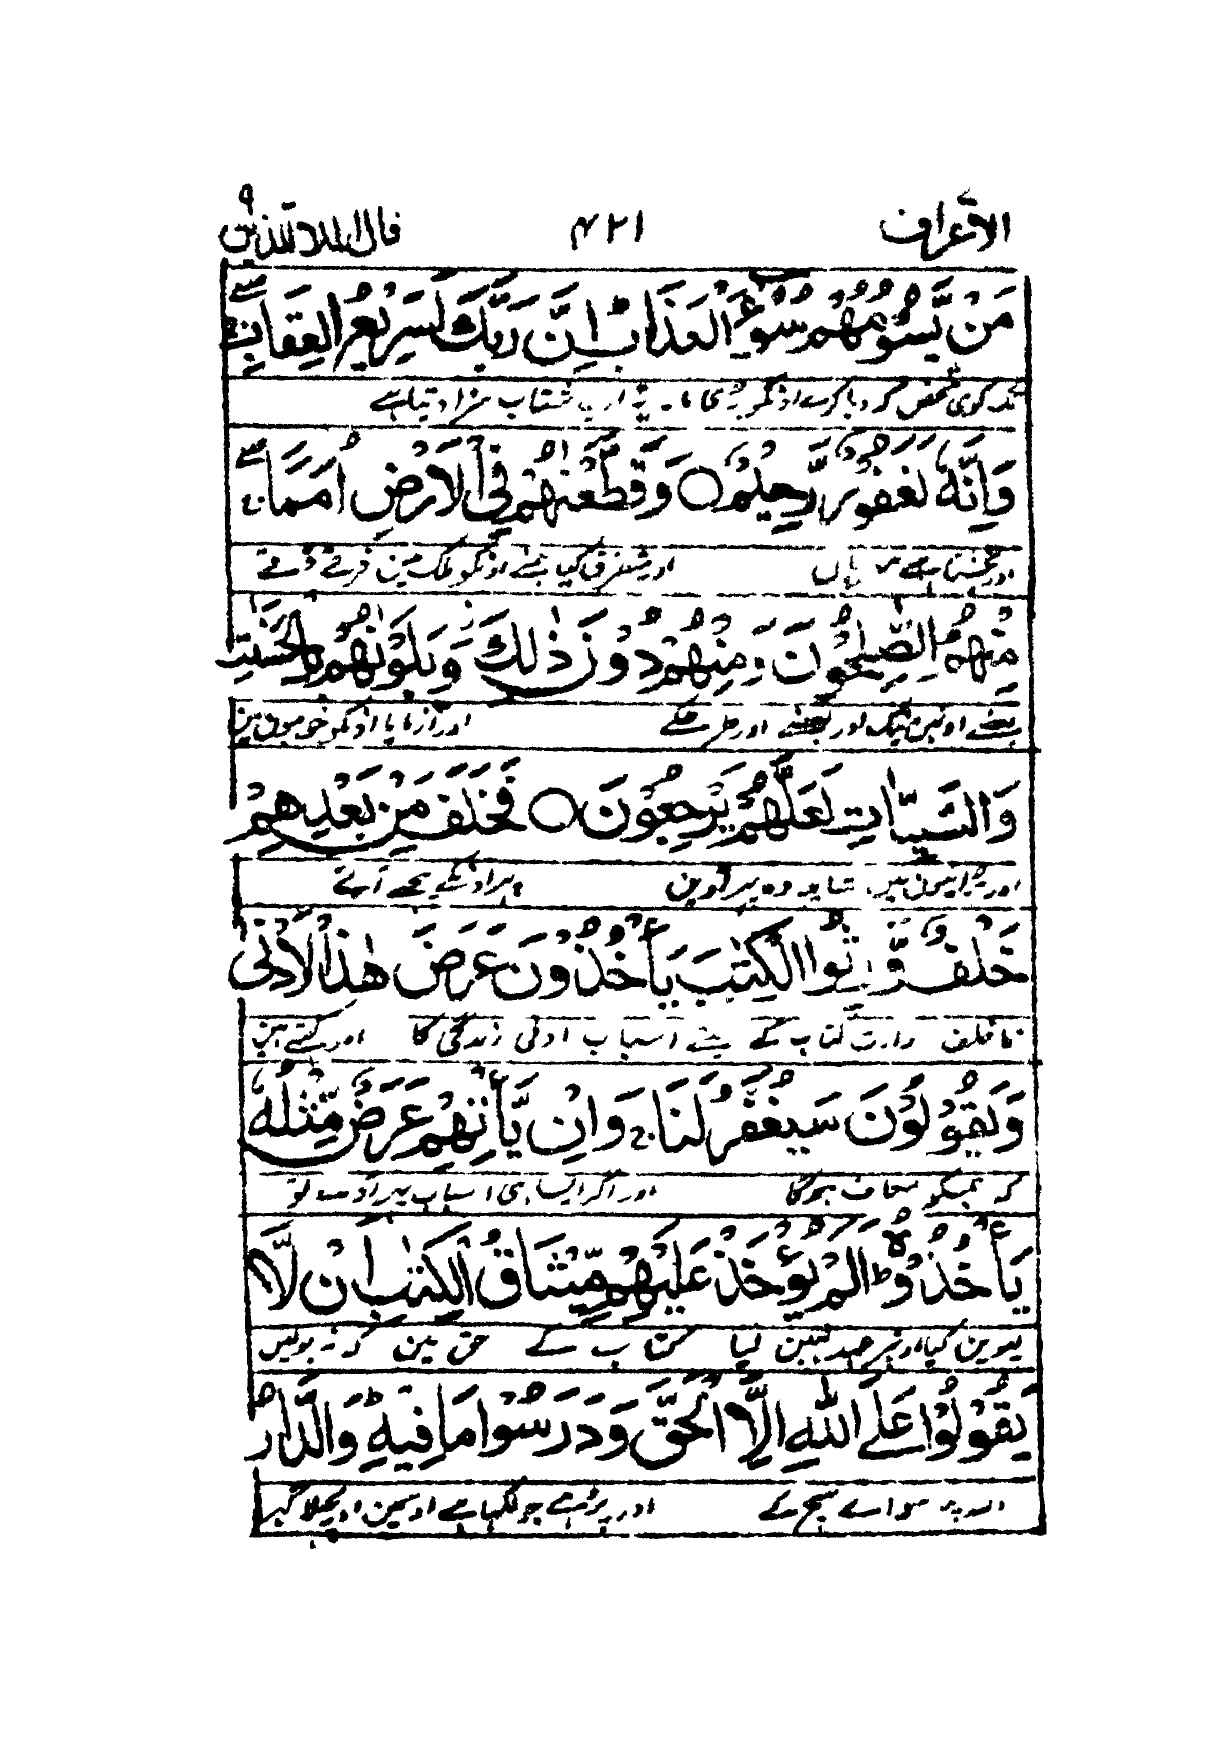 الاعراف ۷ ۴۲۱ قال الملا الذین ۹
مَنْ يَّسُوْمُهُمْ سُوْٓءَ الْعَذَابِ ؕ اِنَّ رَبَّكَ لَسَرِيْعُ الْعِقَابِ ۚۖ
کوی شخص کہ دیا کرے اونکو بری مار تیرا رب شتاب سزا دیتا ہے
وَاِنَّهٗ لَغَفُوْرٌ رَّحِيْمٌ ○ وَقَطَّعْنٰهُمْ فِي الْاَرْضِ اُمَمًا ۚ
اور بخشتا ہے مہربان اور متفرق کیا ہمنے اونکو ملک مین فرقے فرقے
مِنْهُمُ الصّٰلِحُوْنَ وَمِنْهُمْ دُوْنَ ذٰلِكَ ز وَبَلَوْنٰهُمْ بِالْحَسَنٰتِ
بعضے اونمین نیک اور بعضے اور طرح کے اور آزمایا اونکو خوبیون مین
وَالسَّيِّاٰتِ لَعَلَّهُمْ يَرْجِعُوْنَ ○ فَخَلَفَ مِنْۢ بَعْدِهِمْ
اور برائیون مین شاید وہ پھر آوین پھر اونکے پیچھے آئے
خَلْفٌ وَّرِثُوا الْكِتٰبَ يَاْخُذُوْنَ عَرَضَ هٰذَا الْاَدْنٰى
ناخلف وارث کتاب کے لیتے اسباب ادنی زندگی کا اور کہتے ہین
وَيَقُوْلُوْنَ سَيُغْفَرُ لَنَا ۚ وَاِنْ يَّاْتِهِمْ عَرَضٌ مِّثْلُهٗ
کہ ہمکو معاف ہوگا اور اگر ایسا ہی اسباب پھر آوے تو
يَاْخُذُوْهُ ؕ اَلَمْ يُؤْخَذْ عَلَيْهِمْ مِّيْثَاقُ الْكِتٰبِ اَنْ لَّا
لیوین کیا اونپر عہد نہین لیا کتاب کے حق مین کہ نہ بولین
يَقُوْلُوْا عَلَى اللّٰهِ اِلَّا الْحَقَّ وَدَرَسُوْا مَا فِيْهِ ؕ وَالدَّارُ
اللہ پر سوائے سچ کے اور پڑھے جو لکھا ہے اوسمین اور پچھلا گھر